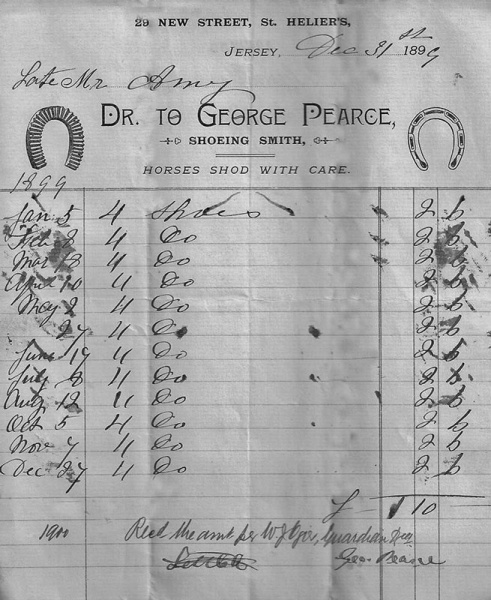 29 NEW STREET, St. HELIER'S,
JERSEY, Dec 31st 1899
Late Mr Amy
DR. TO GEORGE PEARCE,
SHOEING SMITH,
HORSES SHOD WITH CARE.
1899
Jan 5 4 Shoes 2 6
Feb 8 4 Do 2 6
Mar 18 4 Do 2 6
April 10 4 Do 2 6
May 2 4 Do 2 6
27 4 Do 2 6
June 17 4 Do 2 6
July 8 4 Do 2 6
Aug 12 4 Do 2 6
Oct 5 4 Do 2 6
Nov 7 4 Do 2 6
Dec 27 4 Do 2 6
£ 1 10
1900 Recd the amt per W. J. Guardian
Settled Geo. Pearce